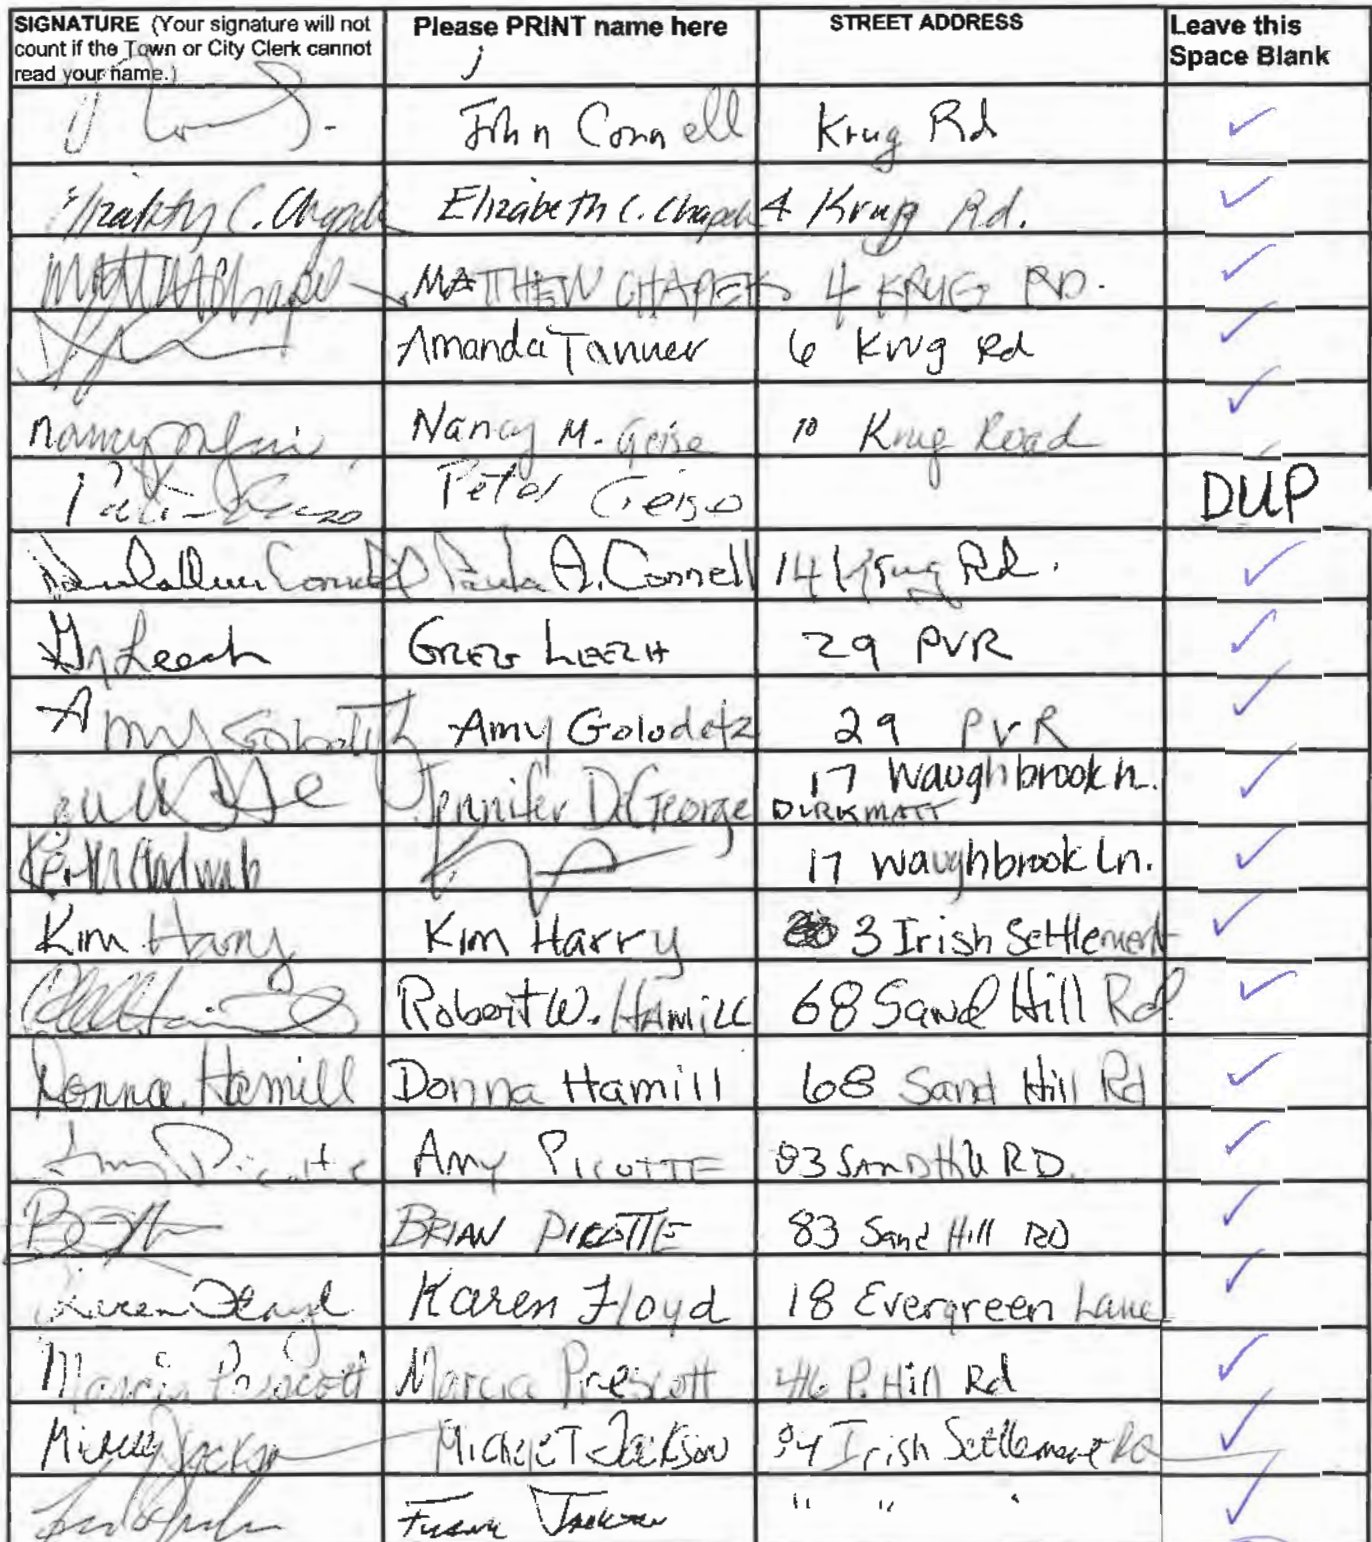 SIGNATURE (Your signature will not count if the Town or City Clerk cannot read your name.) Please PRINT name here STREET ADDRESS Leave this Space Blank
John Connell Krug Rd
Elizabeth C. Chapek Elizabeth C. Chapek 4 Krug Rd.
Matthew Chapek MATTHEW CHAPEK 4 KRUG RD.
Amanda Tanner 6 Krug Rd
Nancy M. Geise 10 Krug Road
Peter Geise DUP
Connell Paula A. Connell 14 Krug Rd.
Leech GREG LEECH 29 PVR
Amy Golodetz Amy Golodetz 29 PVR
Jennifer DeGeorge 17 Waughbrook Ln.
DURKMATT
17 Waughbrook Ln.
Kim Harry Kim Harry 3 Irish Settlement
Robert W. HAMILL 68 Sand Hill Rd
Donna Hamill Donna Hamill 68 Sand Hill Rd
Amy Picotte Amy PICOTTE 83 SAND Hill RD.
BRIAN PICOTTE 83 Sand Hill RD
Karen Floyd Karen Floyd 18 Evergreen Lane
Marcia Prescott Marcia Prescott 46 P. Hill Rd
Jackson Michele T Jackson 94 Irish Settlement Rd
Jackson " " "